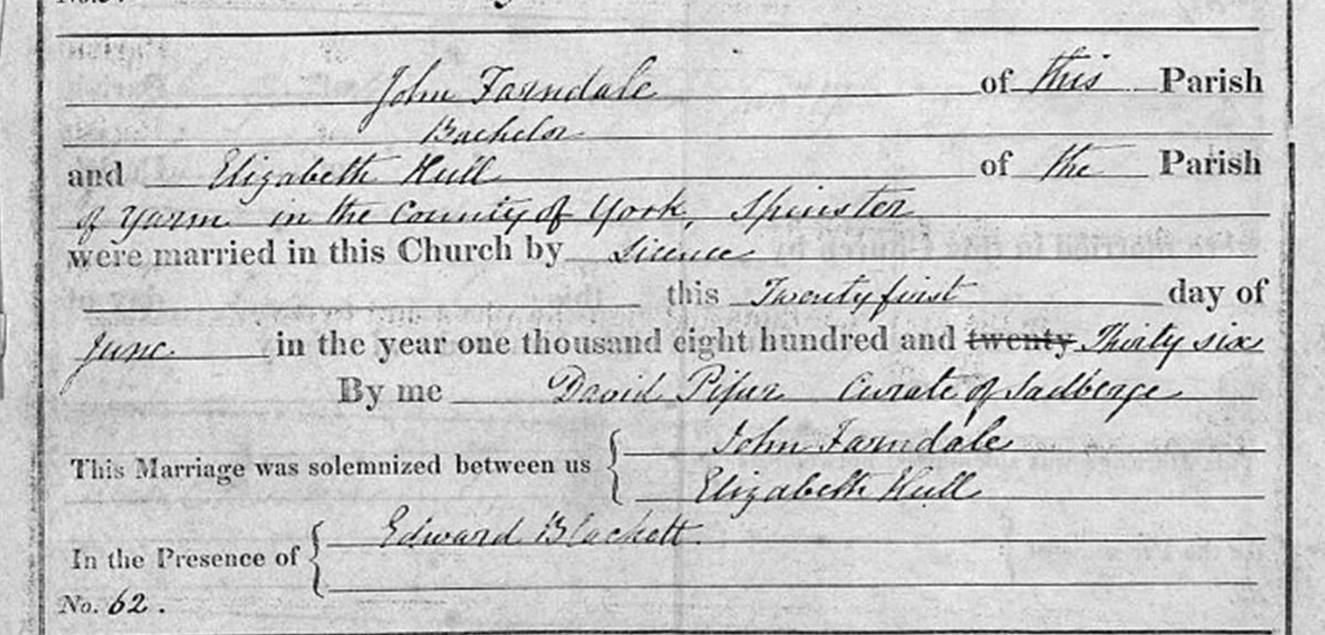 John Farndale of this Parish
Bachelor
and Elizabeth Hull of the Parish
of Yarm in the County of York, Spinster
were married in this Church by Licence
this Twenty first day of
June in the year one thousand eight hundred and twenty Thirty six
By me David Piper Curate of Sadberge
This Marriage was solemnized between us { John Farndale
Elizabeth Hull
In the Presence of { Edward Blackett.
No. 62.